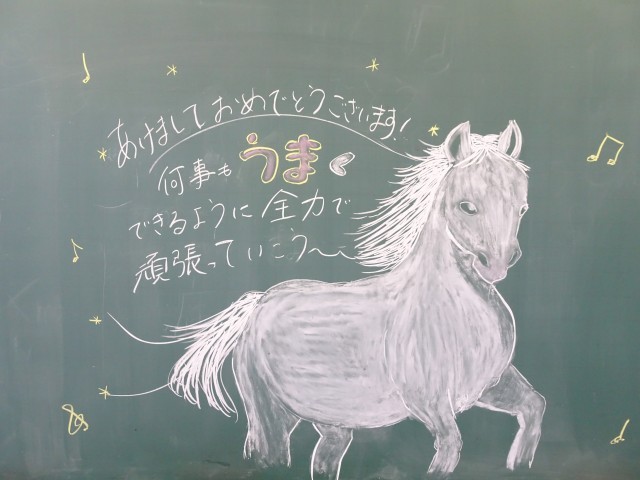 あけましておめでとうございます!
何事もうまく
できるように全力で
頑張っていこう〜